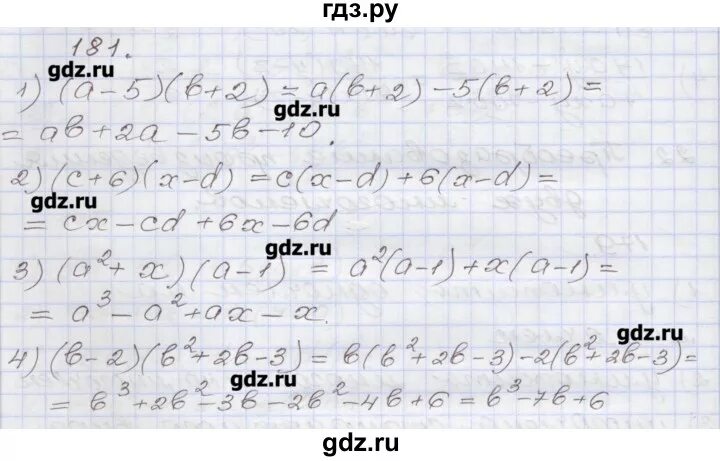 гдз.ру
181.
gdz.ru
1) (a-5)(b+2) = a(b+2) -5(b+2) =
gdz.ru
= ab+2a-5b-10.
2) (c+6)(x-d) = c(x-d)+6(x-d) =
gdz.ru
= cx-cd+6x-6d
gdz.ru
3) (a²+x)(a-1) = a²(a-1)+x(a-1) =
= a³-a²+ax-x.
gdz.ru
4) (b-2)(b²+2b-3) = b(b²+2b-3)-2(b²+2b-3) =
gdz.ru
= b³+2b²-3b-2b²-4b+6 = b³-7b+6
gdz.ru